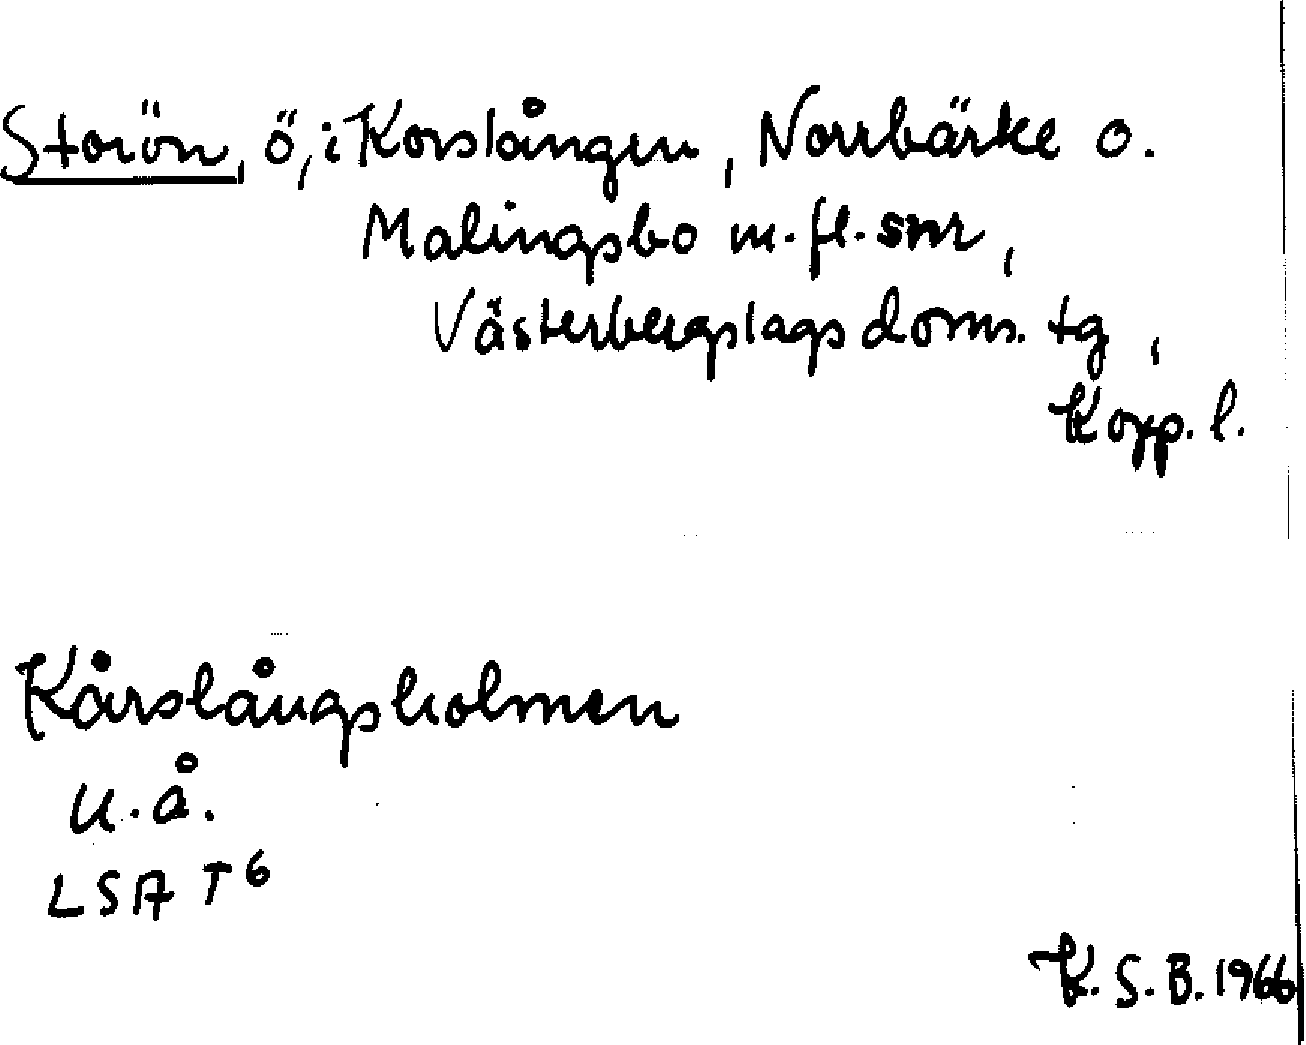 Storön, ö, i Korslången, Norrbärke o.
Malingsbo m.fl. snr,
Västerbergslags doms. tg,
Kopp. l.
Kårslångsholmen
u.å.
LSA T6
K.S.B. 1966